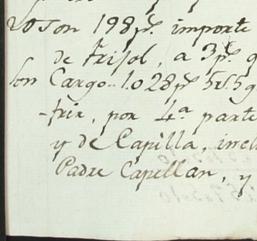 20 son 198 p.s importe
de frijol, a 3 p.s q
son Cargo.. 1.028 p.s 5 r.s 5 g
-frir, por 4.a parte
y de Capilla, incl
Padre Capellan, y